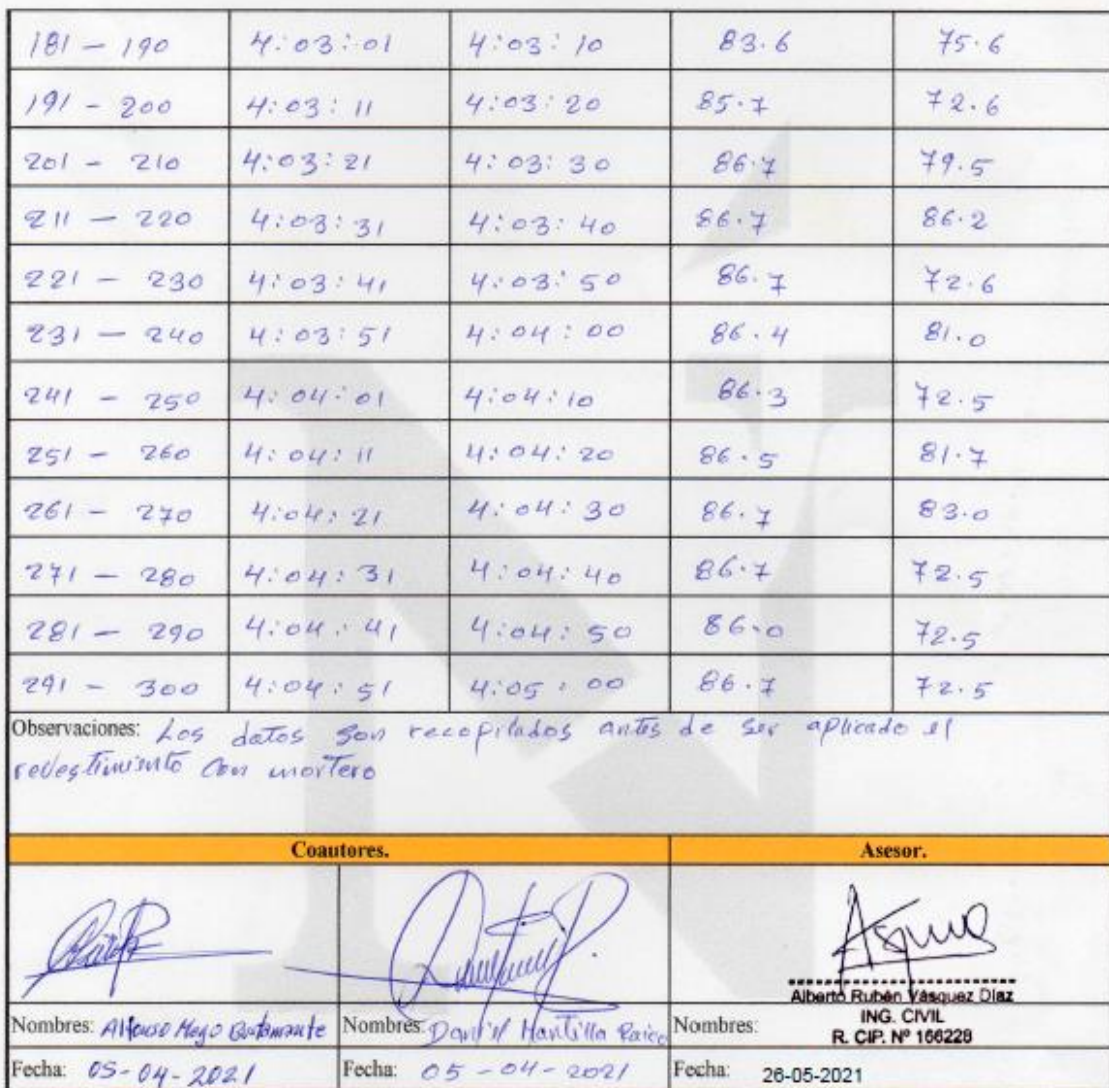 181 - 190 4:03:01 4:03:10 83.6 75.6
191 - 200 4:03:11 4:03:20 85.7 72.6
201 - 210 4:03:21 4:03:30 86.7 79.5
211 - 220 4:03:31 4:03:40 86.7 86.2
221 - 230 4:03:41 4:03:50 86.7 72.6
231 - 240 4:03:51 4:04:00 86.4 81.0
241 - 250 4:04:01 4:04:10 86.3 72.5
251 - 260 4:04:11 4:04:20 86.5 81.7
261 - 270 4:04:21 4:04:30 86.7 83.0
271 - 280 4:04:31 4:04:40 86.7 72.5
281 - 290 4:04:41 4:04:50 86.0 72.5
291 - 300 4:04:51 4:05:00 86.7 72.5
Observaciones: Los datos son recopilados antes de ser aplicado el
revestimiento con mortero
Coautores. Asesor.
Alberto Rubén Vásquez Díaz
ING. CIVIL
R. CIP. Nº 166228
Nombres: Alfonso Mego Bustamante Nombres: Daniel Mantilla Raico Nombres:
Fecha: 05-04-2021 Fecha: 05-04-2021 Fecha: 26-05-2021